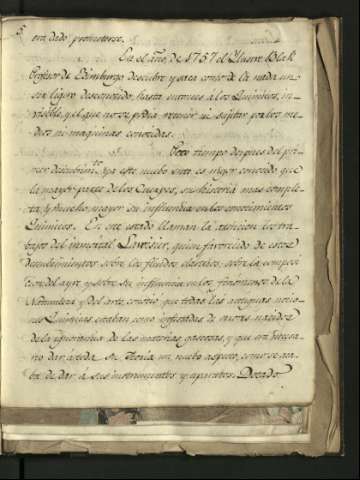 era dado prometerse.
En el año de 1757 el Ilustre Blak
Profesor de Edimburgo descubre y saca como de la nada un
ser ligero desconocido, hasta entonces á los Químicos, in-
visible, y el que no se podia reunir ni sujetar por los me-
dios ni maquinas conocidas.
Poco tiempo despues del pri-
mer descubrim.to ya este nuebo ente es mejor conocido que
la mayor parte de los Cuerpos, su historia mas comple-
ta y mucho mayor su influencia en los conocimientos
Químicos. En este estado llaman la atencion los tra-
bajos del inmortal Lavoisier, quien favorecido de estos
descubrimientos sobre los fluidos elasticos, sobre la composi-
cion del ayre y sobre su influencia en los fenomenos de la
Naturaleza y del arte, conoció que todas las antiguas nocio-
nes Químicas estaban como infestadas de errores nacidos
de la ignorancia de las materias gaseosas, y que era necesa-
rio dar á toda su Teoría un nuebo aspecto, como se aca-
ba de dar á sus instrumentos y aparatos. Dotado